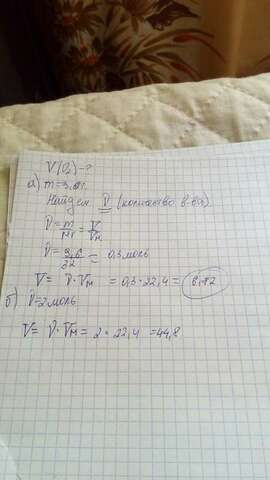 V(O₂)-?
а) m=9,6г.
Найдем ν (количество в-ва)
ν = m/Mr = V/Vм
ν = 9,6/32 = 0,3 моль
V = ν·Vм = 0,3·22,4 =
б) ν=2 моль
V= ν·Vм = 2·22,4 =44,8